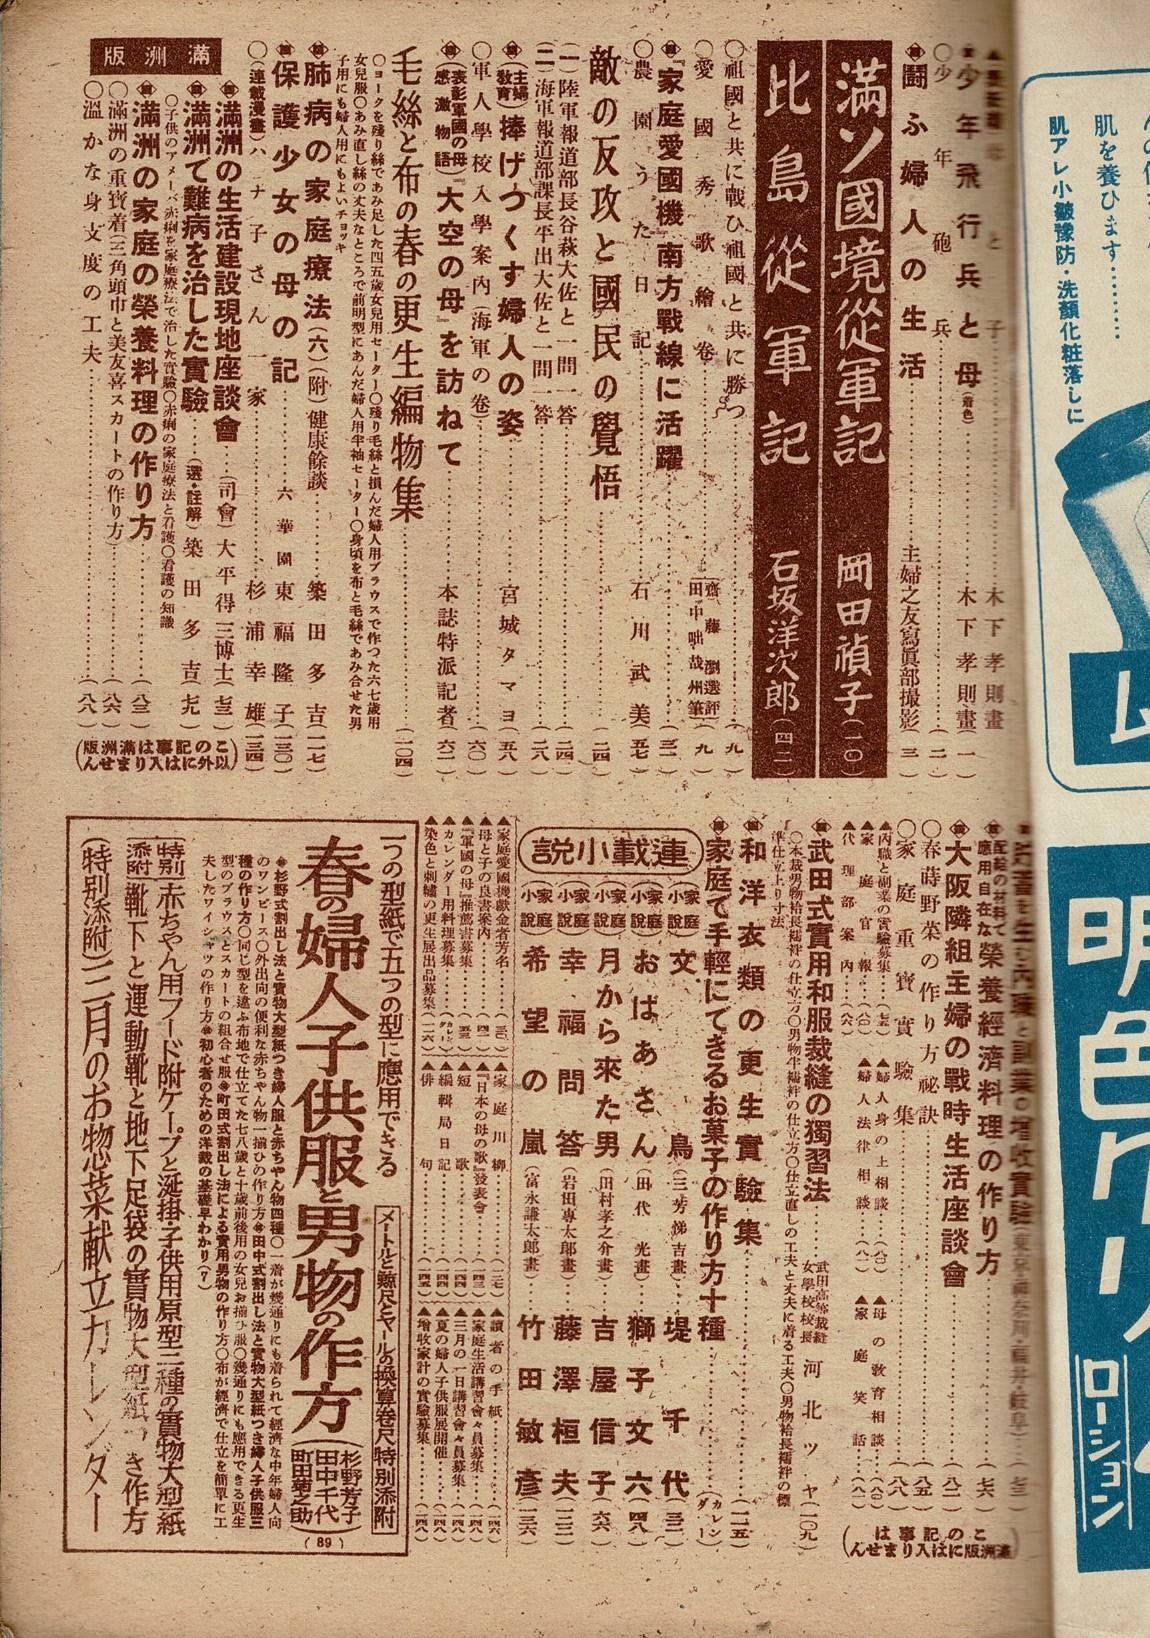 木下孝則畫
少年飛行兵と母(着色)
木下孝則畫(一)
○少年砲兵
(二)
鬪ふ婦人の生活
主婦之友寫眞部撮影(三)
滿ソ國境從軍記
岡田禎子(一〇)
比島從軍記
石坂洋次郎(四二)
○祖國と共に戰ひ祖國と共に勝つ
(九)
○愛國秀歌繪卷
齋藤瀏選評
田中咄哉州筆
(九)
『家庭愛國機』南方戰線に活躍
○農園うた日記
石川武美
敵の反攻と國民の覺悟
(二四)
(一)陸軍報道部長谷萩大佐と一問一答
(二四)
(二)海軍報道部課長平出大佐と一問一答
(二八)
(主婦敎育)捧げつくす婦人の姿
宮城タマヨ(五八)
○軍人學校入學案內(海軍の卷)
(六〇)
(表彰軍國の母感激物語)『大空の母』を訪ねて
本誌特派記者(六二)
毛絲と布の春の更生編物集
(一〇四)
○ヨークを殘り絲であみ足した四五歲女兒用セーター○殘り毛絲と損んだ婦人用ブラウスで作つた六七歲用
女兒服○あみ直し絲の丈夫なところで前明型にあんだ婦人用半袖セーター○身頃を布と毛絲であみ合せた男
子用にも婦人用にもよいチョッキ
肺病の家庭療法(六)(附)健康餘談
築田多吉(一一七)
保護少女の母の記
六華園東福隆子(一三〇)
○(連載漫畫)ハナ子さん一家
杉浦幸雄(一三四)
滿洲版
滿洲の生活建設現地座談會
(司會)大平得三博士
滿洲で難病を治した實驗
(選・註解)築田多吉
○子供のアメーバ赤痢を家庭療法で治した實驗○赤痢の家庭療法と看護○看護の知識
滿洲の家庭の榮養料理の作り方
(八三)
○滿洲の重寶着(三角頭巾と美友喜スカートの作り方)
(八六)
○溫かな身支度の工夫
(八八)
(この記事は滿洲版
以外には入りません)
配給の材料で應用自在な榮養經濟料理の作り方
大阪隣組主婦の戰時生活座談會
(八二)
○春蒔野菜の作り方祕訣
○家庭重寶實驗集
(八八)
▲內職と副業の實驗募集
▲家庭官報
▲代理部案內(八六)
▲婦人身の上相談(八〇)
▲婦人法律相談(八一)
▲母の敎育相談(八〇)
▲家庭笑話(八一)
(この記事は
滿洲版には入りません)
武田式實用和服裁縫の獨習法
武田高等裁縫女學校校長河北ツヤ(一〇九)
○本裁男物袷長襦袢の仕立方○男物半襦袢の仕立方○仕立直しの工夫と丈夫に着る工夫○男物袷長襦袢の標
準仕立上り寸法
和洋衣類の更生實驗集
(一一五)
家庭で手輕にできるお菓子の作り方十種
(カレンダー)
連載小說
(家庭小說)文鳥(三芳悌吉畫)堤千代
(家庭小說)おばあさん(田代光畫)獅子文六
(家庭小說)月から來た男(田村孝之介畫)吉屋信子(六六)
(家庭小說)幸福問答(岩田專太郎畫)藤澤桓夫
(家庭小說)希望の嵐(富永謙太郎畫)竹田敏彥(一三六)
▲家庭愛國機獻金者芳名
▲母と子の良書案內
▲『軍國の母』推薦書募集
▲カレンダー用料理募集
▲染色と刺繡の更生展出品募集(一二六)
▲家庭川柳
▲『日本の母の歌』發表會
▲短歌
▲編輯局日記
▲俳句
▲讀者の手紙(一四六)
▲家庭生活講習會々員募集
▲三月の一日講習會々員募集
▲夏の婦人子供服展開催
▲增收家計の實驗募集
一つの型紙で五つの型に應用できる
メートルと鯨尺とヤールの換算卷尺特別添附
春の婦人子供服と男物の作方
(杉野芳子
田中千代
町田菊之助)
(89)
●杉野式割出し法と實物大型紙つき婦人服と赤ちやん物四種○一着が幾通りにも着られて經濟な中年婦人向
のワンピース○外出向の便利な赤ちやん物一揃ひの作り方●田中式割出し法と實物大型紙つき婦人子供服三
種の作り方○同じ型を違ふ布地で仕立てた七八歲と十歲前後用の女兒お揃ひ服○幾通りにも應用できる更生
型のブラウスとスカートの組合せ服●町田式割出し法による實用男物の作り方○布が經濟で仕立を簡單に工
夫したワイシャツの作り方●初心者のための洋裁の基礎早わかり(7)
特別添附 赤ちやん用フード附ケープと涎掛・子供用原型三種の實物大型紙
靴下と運動靴と地下足袋の實物大型紙つき作方
(特別添附)三月のお惣菜献立カレンダー
肌を養ひます………
肌アレ小皺豫防・洗顏化粧落しに
明色クリ
ローション